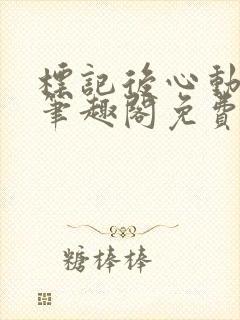 標記後心動
筆趣閣免費
糖棒棒